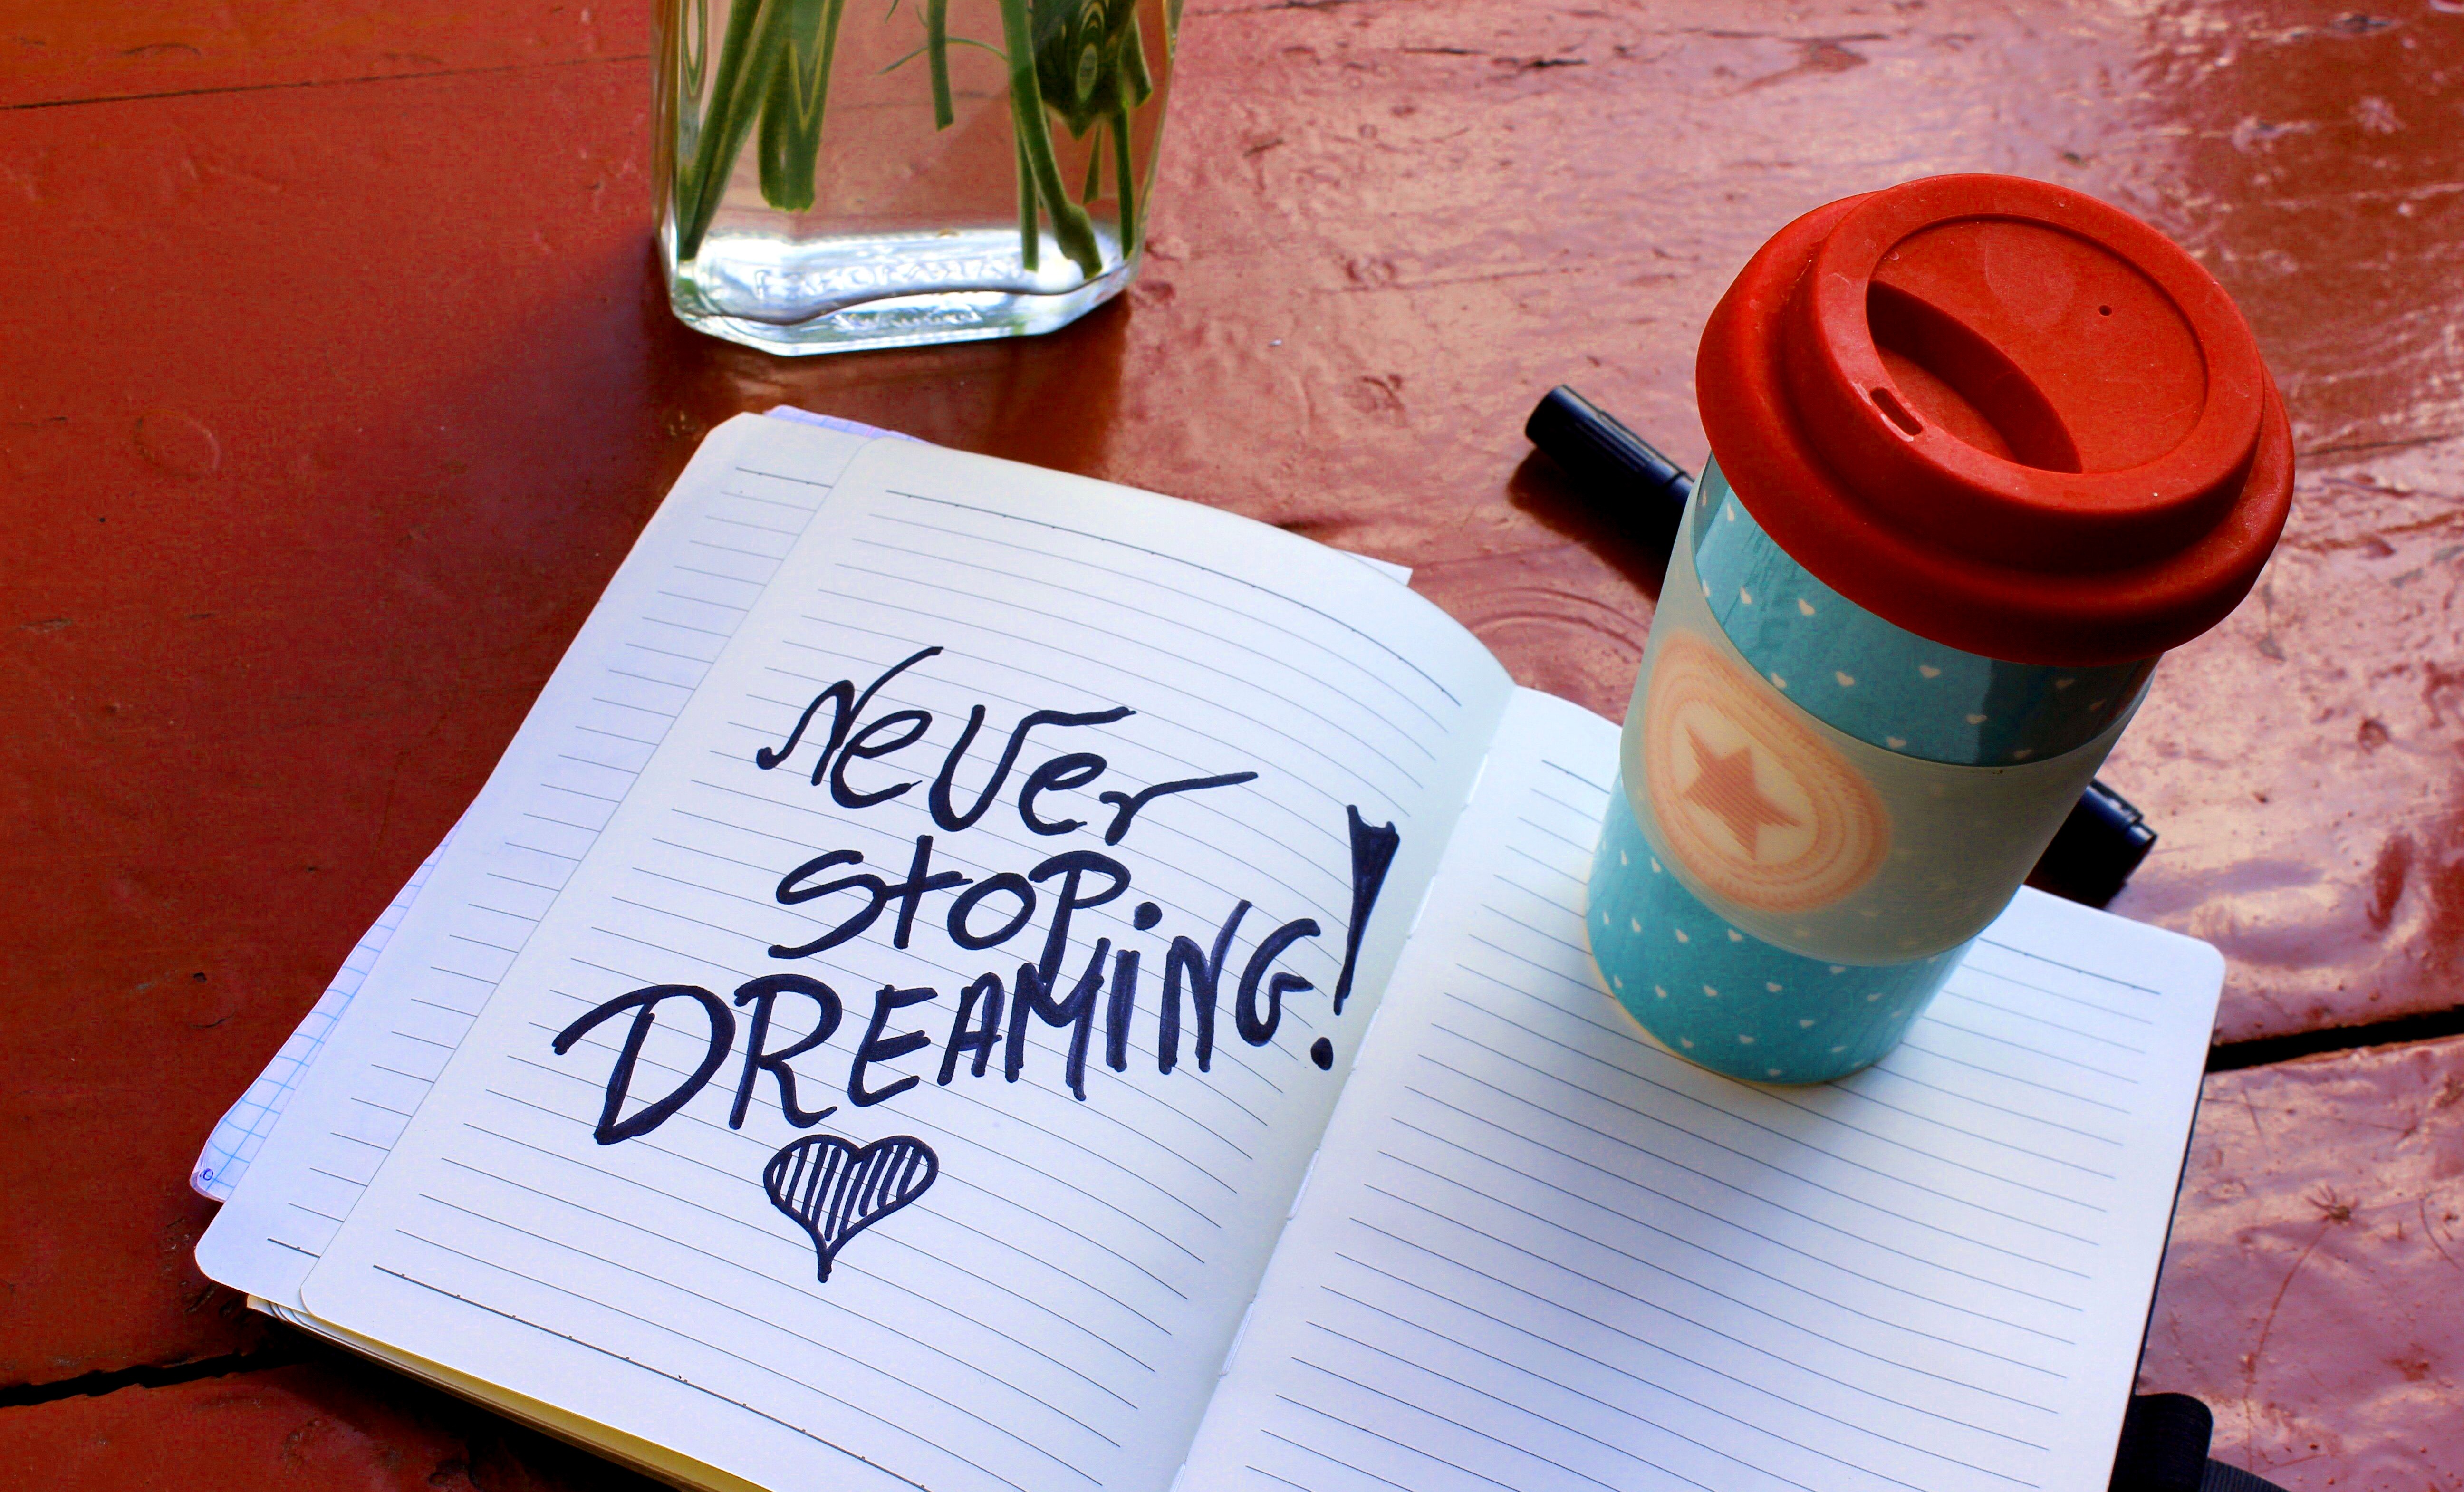 Never
stoping!
DREAMING